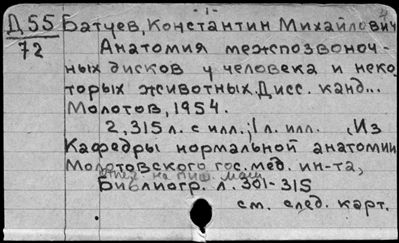 -1-
Д55 Батуев, Константин Михайлович
72 Анатомия межпозвоноч-
ных дисков у человека и неко
торых животных. Дисс. канд...
Молотов, 1954.
2,315 л. с илл.; 1 л. илл. , Из
Кафедры нормальной анатомии
Молотовского гос. мед. ин-та,
на пиш. маш.
Библиогр. л. 301-315
см. след. карт.